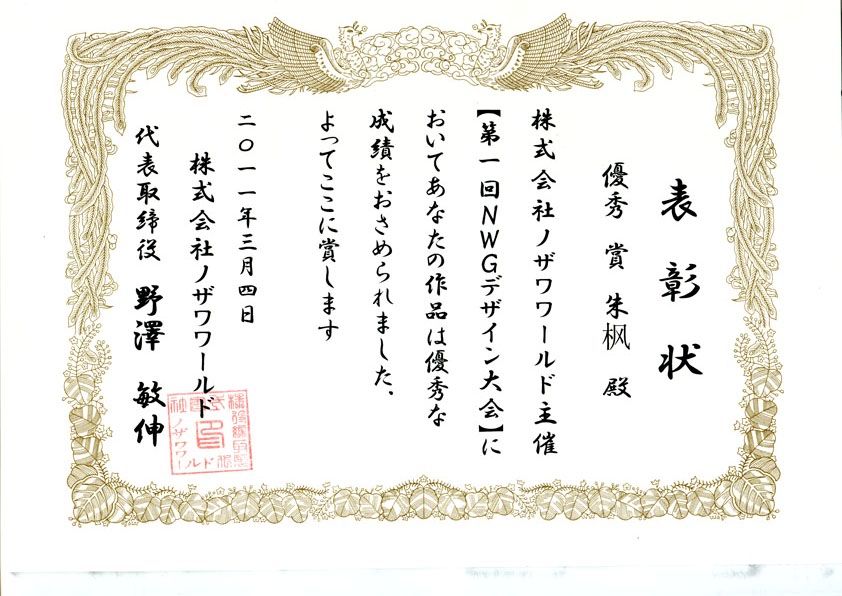 表彰状
優秀賞 朱枫 殿
株式会社ノザワワールド主催
【第一回NWGデザイン大会】に
おいてあなたの作品は優秀な
成績をおさめられました、
よってここに賞します
二〇一一年三月四日
株式会社ノザワワールド
代表取締役 野澤 敏伸